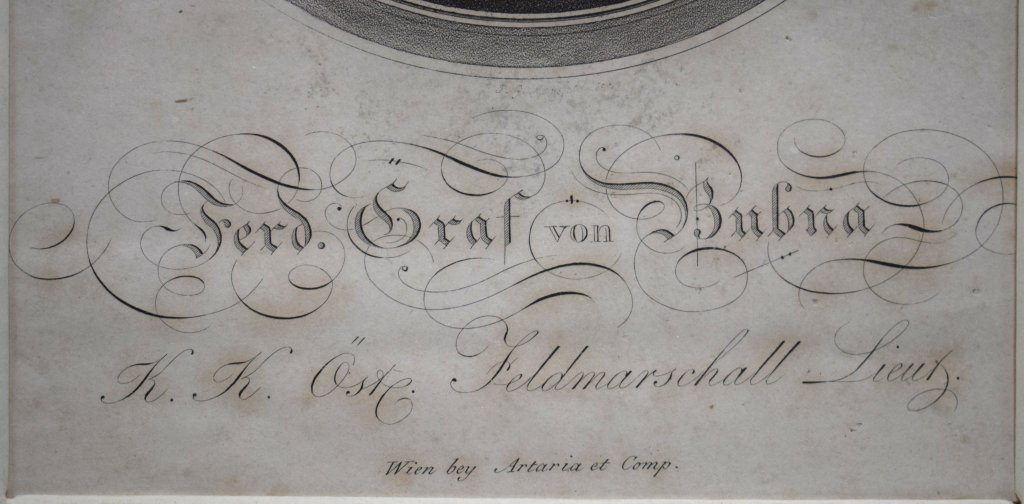 Ferd. Graf von Bubna
K. K. Öst. Feldmarschall Lieut.
Wien bey Artaria et Comp.